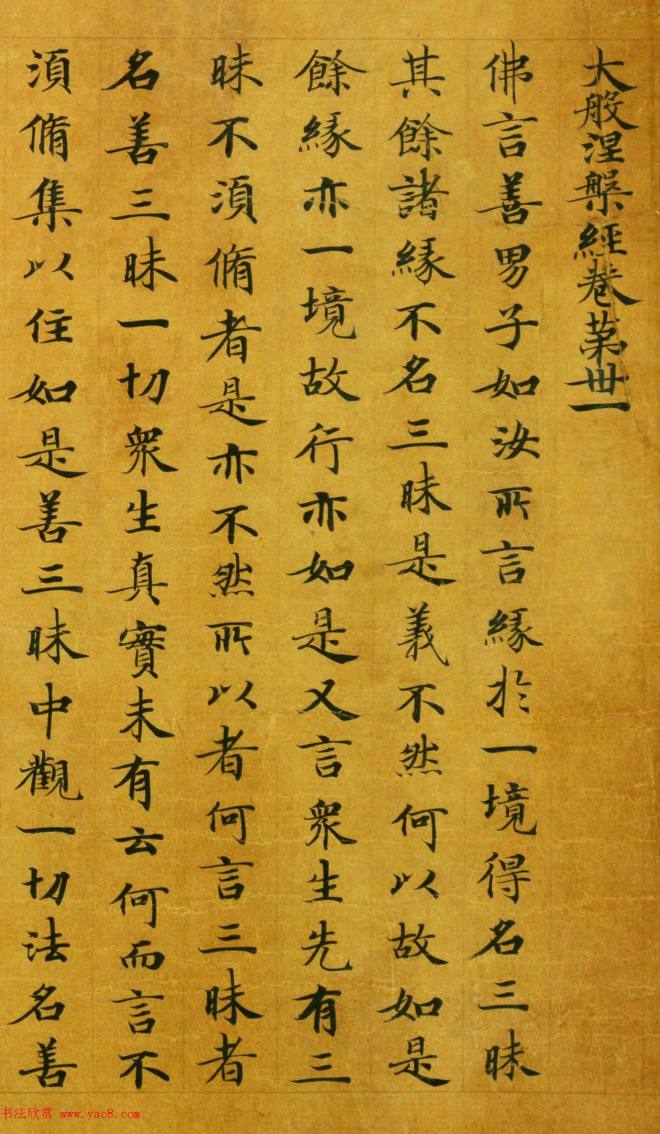 大般涅槃經卷苐卅一
佛言善男子如汝所言緣扵一境得名三昧
其餘諸緣不名三昧是義不然何以故如是
餘緣亦一境故行亦如是又言衆生先有三
昧不湏脩者是亦不然所以者何言三昧者
名善三昧一切衆生真實未有云何而言不
湏脩集以住如是善三昧中觀一切法名善
书法欣赏 www.yac8.com